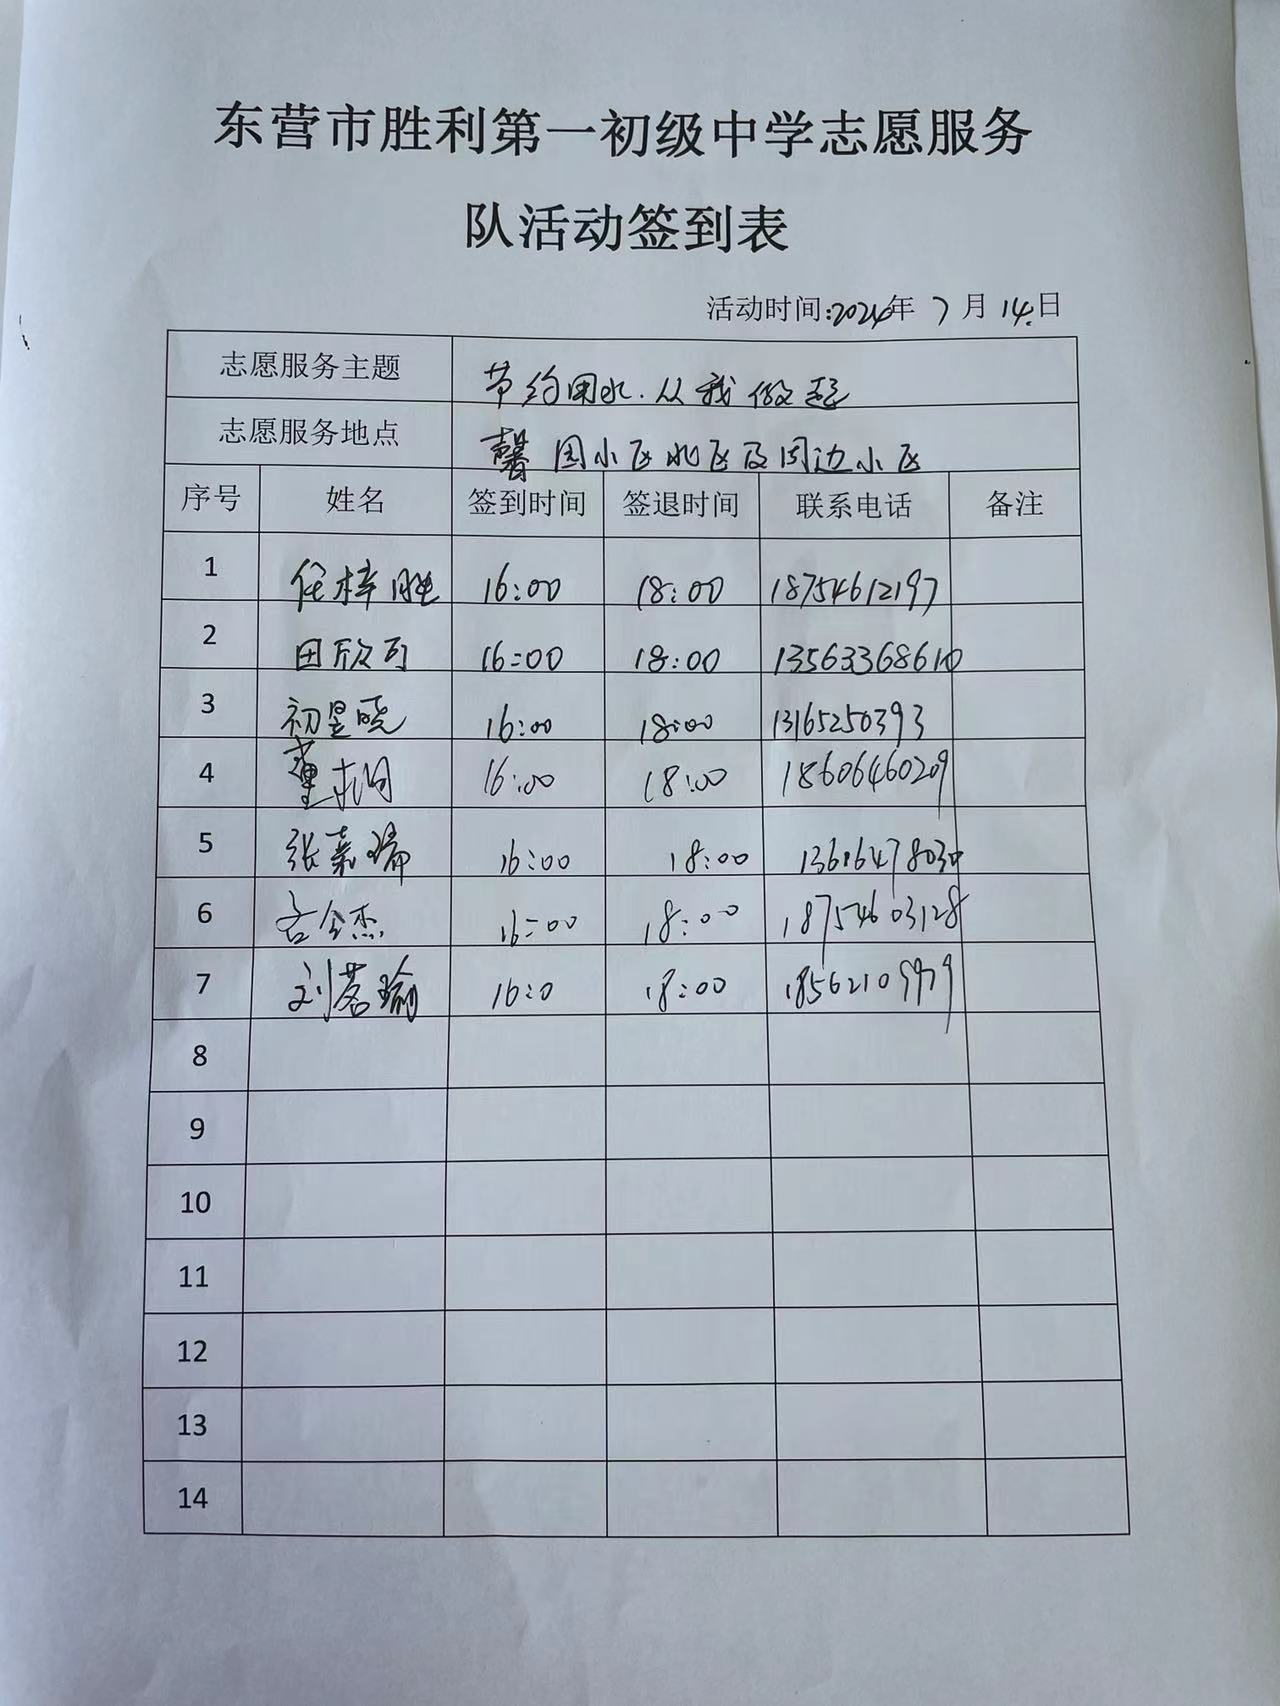 东营市胜利第一初级中学志愿服务
队活动签到表
活动时间:2024年 7 月 14.日
志愿服务主题 节约用水.从我做起
志愿服务地点 馨园小区北区及周边小区
序号 姓名 签到时间 签退时间 联系电话 备注
1 任梓胜 16:00 18:00 18754612197
2 田欣可 16:00 18:00 13563368610
3 初昱晓 16:00 18:00 13165250393
4 董桐 16:00 18:00 18606460209
5 张嘉瑞 16:00 18:00
6 16:00 18:00 18754603128
7 刘茗瑜 16:0 18:00 18562109979
8
9
10
11
12
13
14